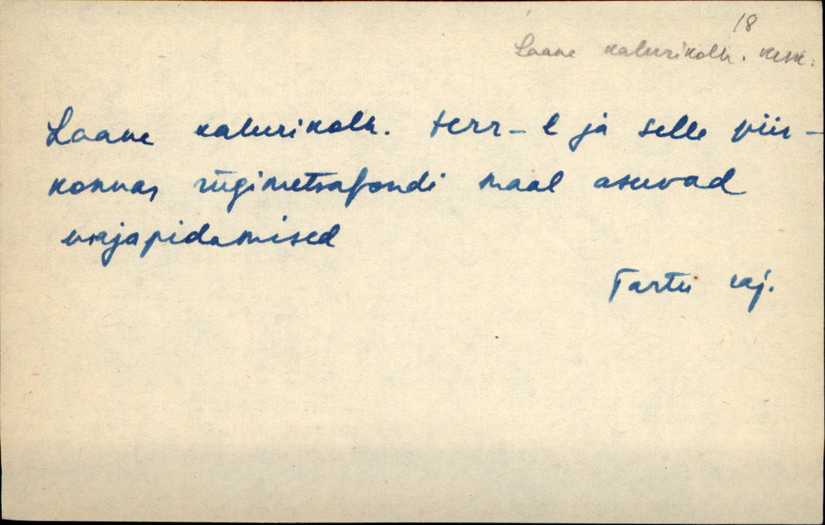 18
Laane kalurikolh. kesk.
Laane kalurikolh. terr-l ja selle piir-
konnas riigimetsafondi maal asuvad
majapidamised
Tartu raj.